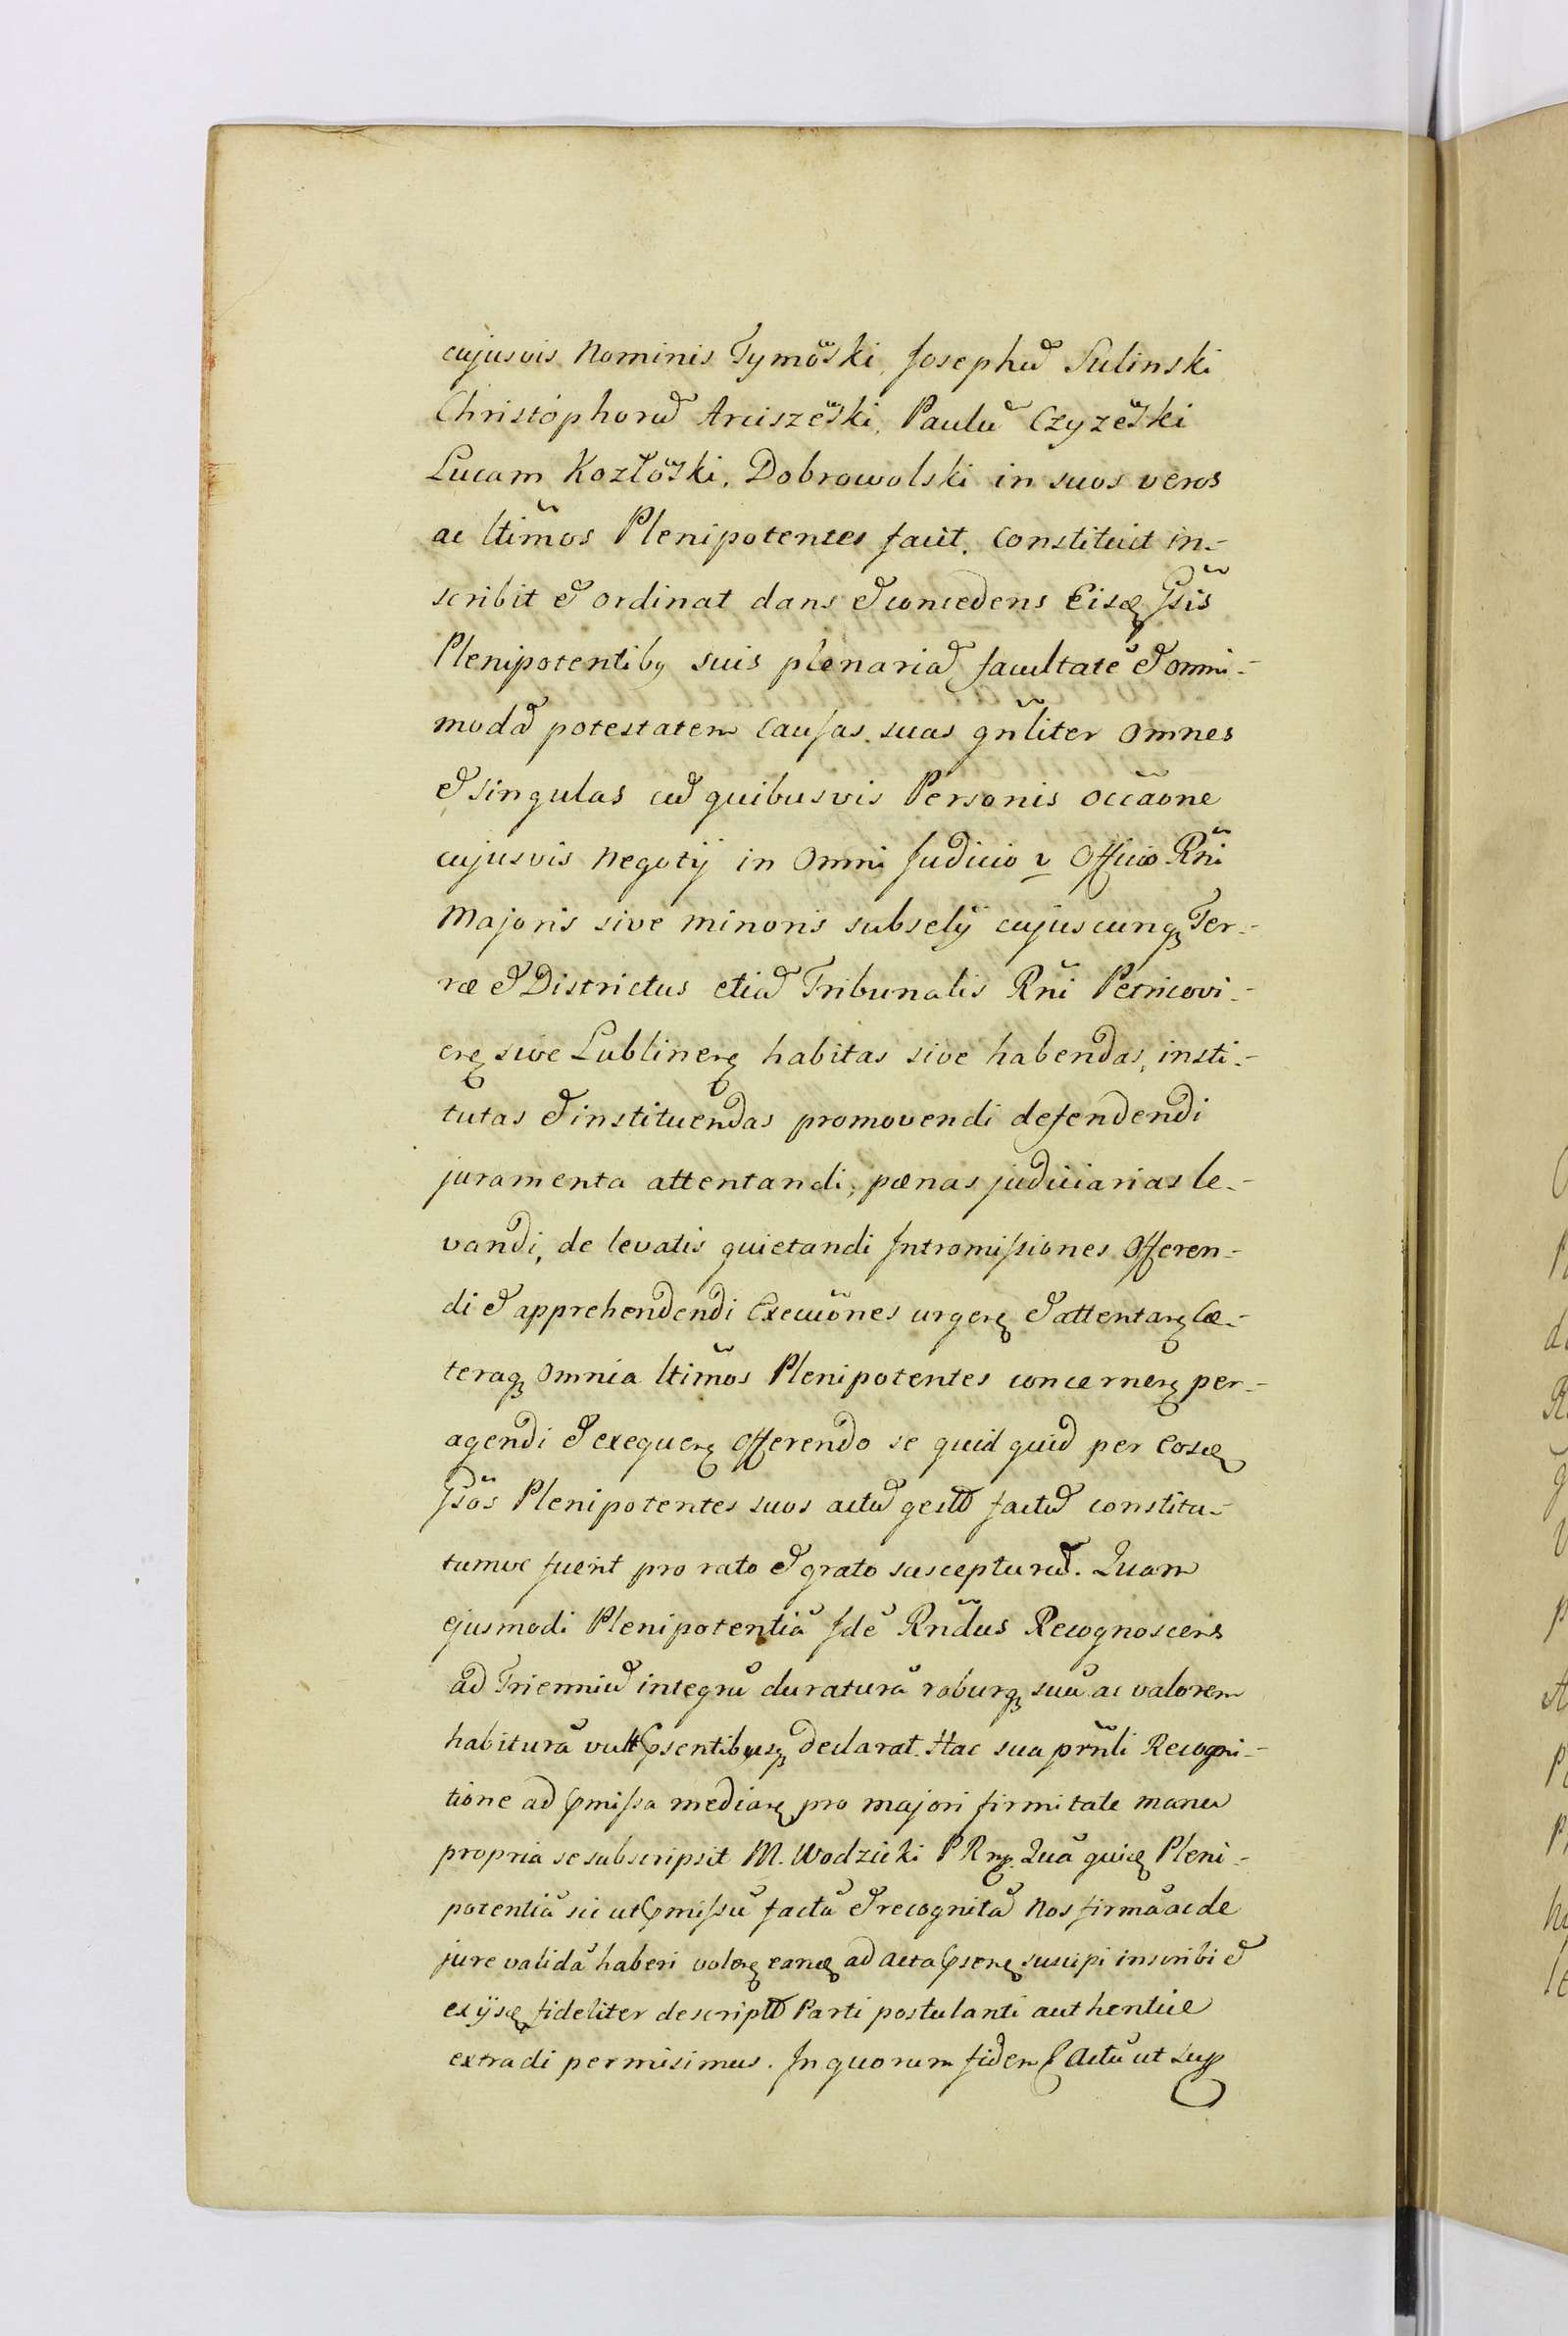 cujusvis Nominis Tymõski, Josephũ Sulinski
Christophorũ Arciszẽski, Paulũ Czyzẽski
Lucam Kozłõski, Dobrowolski in suos veros
ac ltimõs Plenipotentes facit, constituit in-
scribit et ordinat dans et concedens Eisdẽ Ipsis
Plenipotentibꝰ suis plenariã facultatẽ et omni-
modã potestatem causas suas gñliter omnes
et singulas cũ quibusvis Personis occãone
cujusvis Negotij in omni Judicio v Officio Rñi
Majoris sive minoris subselij cujuscunqꝫ Ter-
ræ et Districtus etiã Tribunalis Rñi Petricovi-
eñ sive Lublineñ habitas sive habendas, insti-
tutas et instituendas promovendi defendendi
juramenta attentandi, pœnas judiciarias le-
vandi, de levatis quietandi Intromissiones Offeren-
di et apprehendendi Execuõnes urgeñ et attentañ Cæ-
teraqꝫ omnia ltimõs Plenipotentes concerneñ per-
agendi et exequeñ offerendo se quid quid per eosdẽ
Ipsos Plenipotentes suos actũ gestũ factũ constitu-
tumve fuerit pro rato et grato suscepturũ. Quam
ejusmodi Plenipotentiã Idẽ Rñdus Recognoscens
ad Trienniũ integrũ duraturã roburqꝫ suũ ac valorem
habiturã vult pñsentibusqꝫ declarat. Hac sua prñli Recogni-
tione ad pñmissa mediañ pro majori firmitate manu
propria se subscripsit M. Wodzicki P R mp. Quã quidẽ Pleni-
potentiã sic ut pñmissũ factã et recognitã Nos firmã ac de
jure validã haberi voleñ eandẽ ad acta pñseñ suscipi inscribi et
ex ijsdẽ fideliter descriptũ Parti postulanti authentice
extradi permisimus. In quorum fidem Actũ ut sup